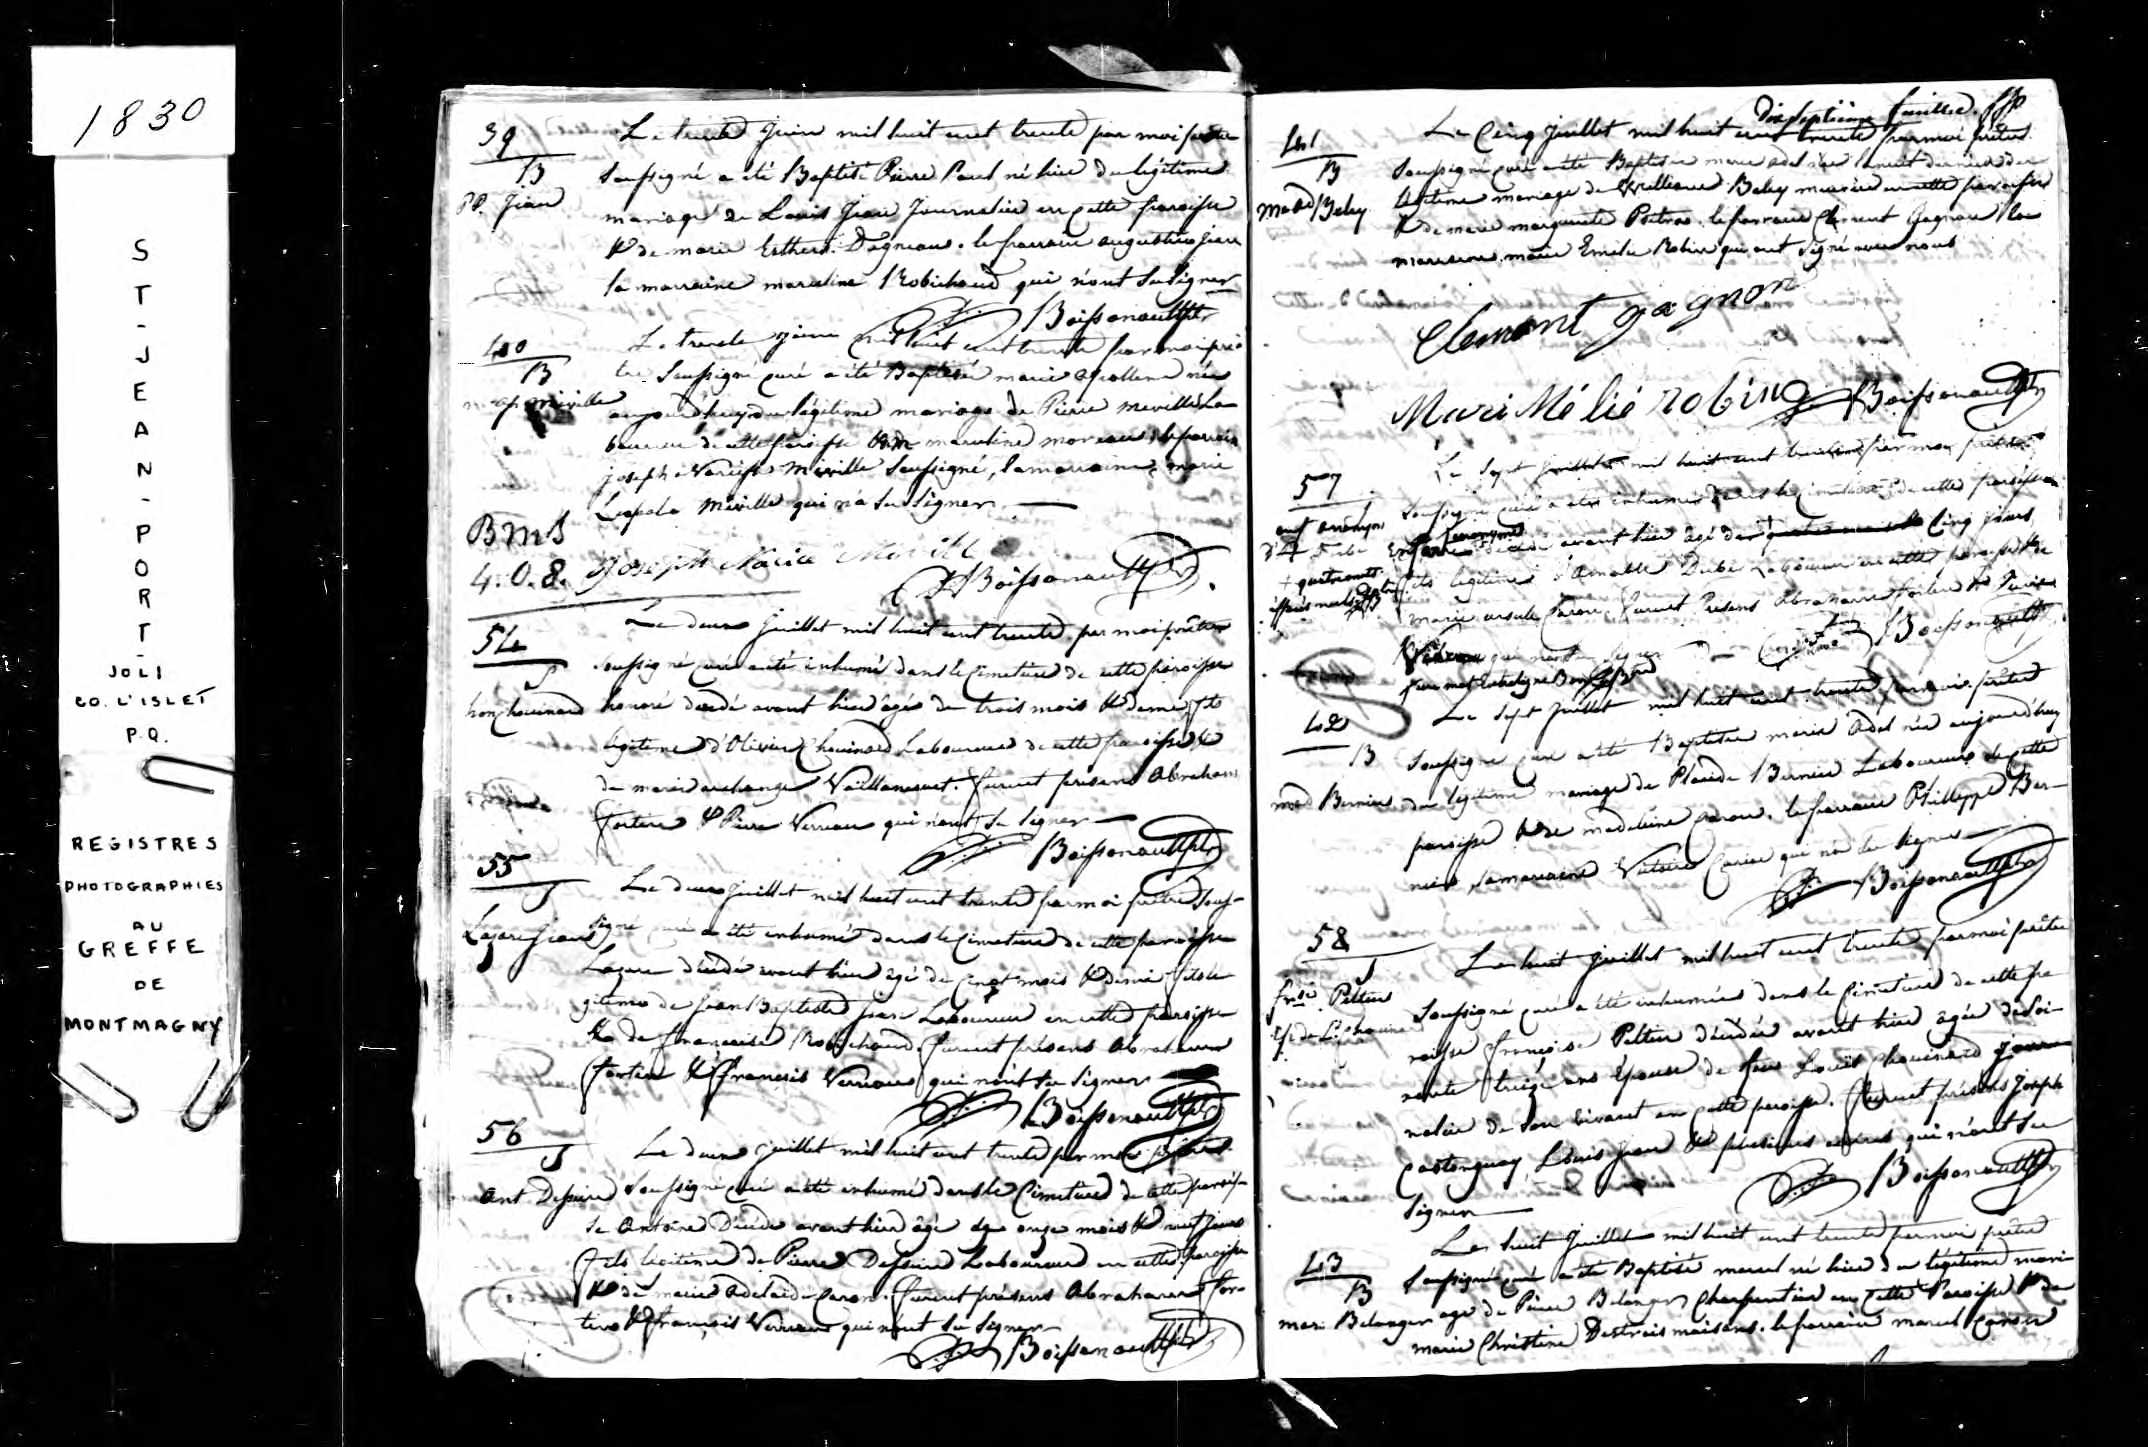 1830
S
T
-
J
E
A
N
-
P
O
R
T
-
JOLI
CO. L'ISLET
P.Q.
REGISTRES
PHOTOGRAPHIES
AU
GREFFE
DE
MONTMAGNY
39
B
PP. Jean
Le trente Juin mil huit cent trente par moi prêtre
soussigné a été Baptisé Pierre Paul né hier du légitime
mariage de Louis Jean Journalier en cette paroisse
& de marie Esther Dagneau. le parrain augustin Jean
la marraine marceline Robichaud qui n'ont su signer
Boissonnault ptr
40
B
Miville
Le trente Juin mil huit cent trente par moi prê
tre soussigné curé a été Baptisée marie née
aujourd'huy du légitime mariage de Pierre Miville La
boureur de cette paroisse & de marceline moreau, le parrain
joseph Narcisse Miville soussigné, la marraine, marie
Miville qui n'a su signer
BMS
4.0.8. Joseph Narice Mivill
Boissonnault ptr
54
S
hon. Chouinard
Le deux Juillet mil huit cent trente par moi prêtre
soussigné curé a été inhumé dans le Cimetière de cette paroisse
honoré décédé avant hier âgé de trois mois & demi fils
légitime d'Olivier Chouinard Laboureur de cette paroisse &
de marie archange Vaillancourt. furent présens Abraham
Fortin & Pierre Verreau qui n'ont su signer
Boissonnault ptr
55
S
Lazare Jean
Le deux Juillet mil huit cent trente par moi prêtre sous-
signé curé a été inhumé dans le Cimetière de cette paroisse
Lazare décédé avant hier âgé de cinq mois & demi fils lé
gitime de Jean Baptiste Jean Laboureur en cette paroisse
& de françoise Robichaud. furent présens Abraham
Fortin & François Verreau qui n'ont su signer
Boissonnault ptr
56
S
Ant Dessaind
Le deux Juillet mil huit cent trente par moi prêtre
soussigné curé a été inhumé dans le Cimetière de cette parois-
se Antoine décédé avant hier âgé de onze mois & neuf jours
fils légitime de Pierre Laboureur en cette paroisse
& de marie Adelaide Caron. furent présens Abraham For-
tin & François Verreau qui n'ont su signer
Boissonnault ptr
Dixseptième feuillet
41
B
Beley
Le Cinq Juillet mil huit cent trente par moi prêtre
soussigné curé a été Baptisée marie Adel née la nuit dernière du
légitime mariage de William Beley en cette paroisse
& de marie marguerite Poitras. le parrain Clement Gagnon la
marraine marie Emelie Robin qui ont signé avec nous
Clemant gagnon
Mari Mélié robin
Boissonnault ptr
57
enf anonyme
Le sept Juillet mil huit cent trente par moi prêtre
soussigné curé a été inhumé dans le Cimetière de cette paroisse
Enfant anonyme décédé avant hier âgé de Cinq jours
fils légitime d'Amable Dubé Laboureur en cette paroisse & de
marie ursule Caron. furent présens Abraham Fortin & Pierre
Verreau qui n'ont su signer
Boissonnault ptr
42
B
Bernier
Le sept Juillet mil huit cent trente par moi prêtre
soussigné curé a été Baptisée marie Adel née aujourd'huy
du légitime mariage de Placide Bernier Laboureur de cette
paroisse & de madeleine Caron. le parrain Philippe Ber-
nier, la marraine Victoire Caron qui n'a su signer
Boissonnault ptr
58
S
frse Peltier
Le huit Juillet mil huit cent trente par moi prêtre
soussigné curé a été inhumée dans le Cimetière de cette pa
roisse françoise Peltier décédée avant hier âgée de soi-
xante treize ans Epouse de feu Louis Chouinard Jour
nalier de son vivant en cette paroisse. furent présens Joseph
Castonguay, Louis Jean & plusieurs autres qui n'ont su
signer
Boissonnault ptr
43
B
mar. Belanger
Le huit Juillet mil huit cent trente par moi prêtre
soussigné curé a été Baptisé marcel né hier du légitime mari
age de Pierre Belanger Charpentier en cette Paroisse & de
marie Christine Destroismaisons. le parrain marcel Caron